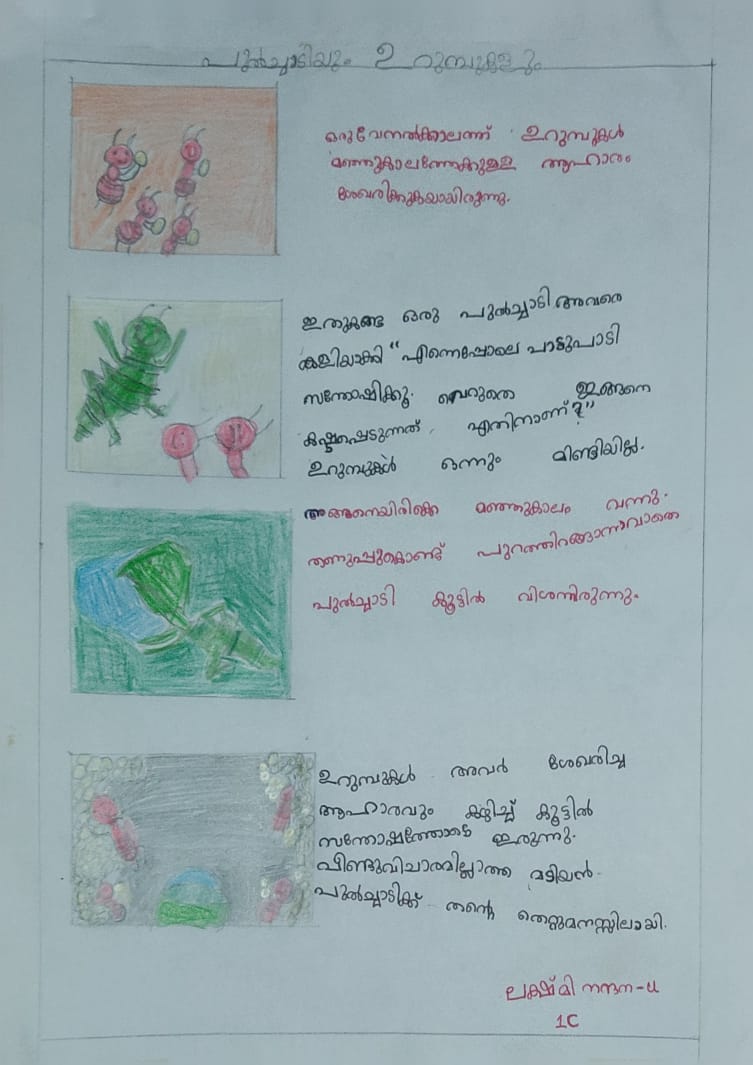 പുൽച്ചാടിയും ഉറുമ്പുകളും
ഒരു വേനൽക്കാലത്ത് ഉറുമ്പുകൾ
മഞ്ഞുകാലത്തേക്കുള്ള ആഹാരം
ശേഖരിക്കുകയായിരുന്നു.
ഇതുകണ്ട ഒരു പുൽച്ചാടി അവരെ
കളിയാക്കി "എന്നെപ്പോലെ പാട്ടുപാടി
സന്തോഷിക്കൂ. വെറുതെ ഇങ്ങനെ
കഷ്ടപ്പെടുന്നത് എന്തിനാണ്?"
ഉറുമ്പുകൾ ഒന്നും മിണ്ടിയില്ല.
അങ്ങനെയിരിക്കെ മഞ്ഞുകാലം വന്നു.
തണുപ്പുകൊണ്ട് പുറത്തിറങ്ങാനാവാതെ
പുൽച്ചാടി കൂട്ടിൽ വിശന്നിരുന്നു.
ഉറുമ്പുകൾ അവർ ശേഖരിച്ച
ആഹാരവും കഴിച്ച് കൂട്ടിൽ
സന്തോഷത്തോടെ ഇരുന്നു.
വീണ്ടുവിചാരമില്ലാത്ത മടിയൻ
പുൽച്ചാടിക്ക് തന്റെ തെറ്റുമനസ്സിലായി.
ലക്ഷ്മി നന്ദന-u
1C